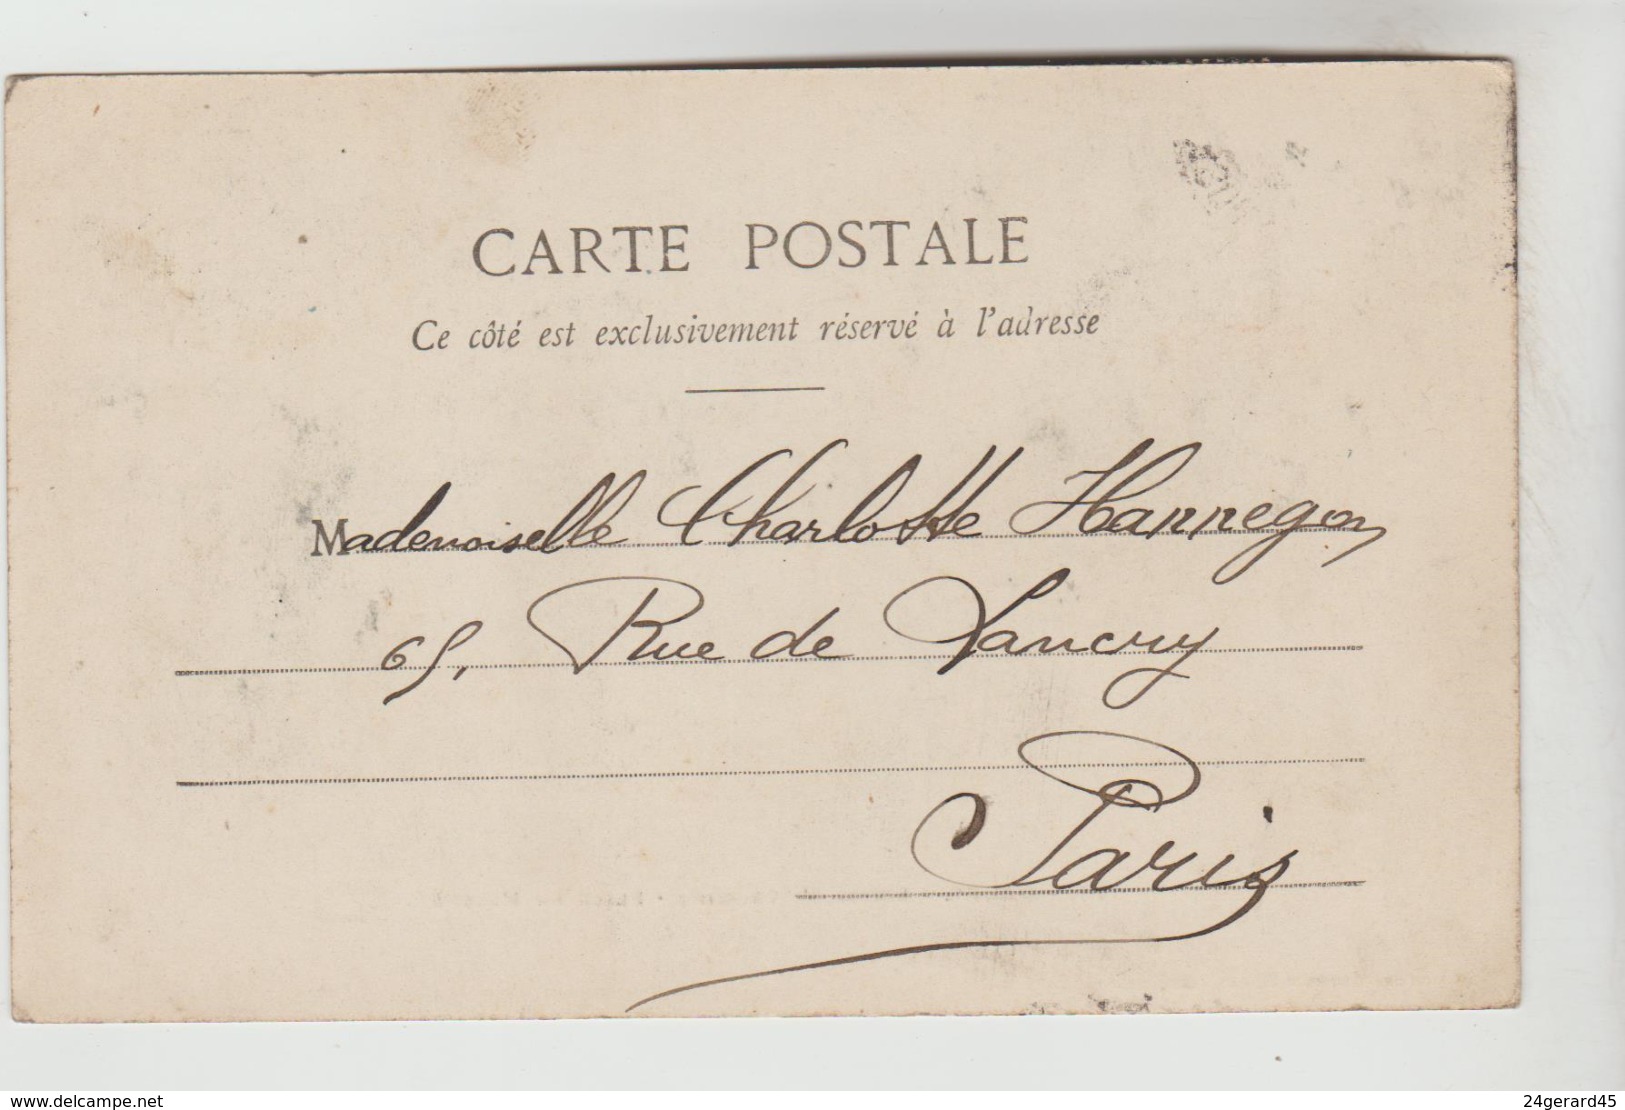 CARTE POSTALE
Ce côté est exclusivement réservé à l'adresse
Mademoiselle Charlotte Hannegon
65, Rue de Lancry
Paris
www.delcampe.net
24gerard45